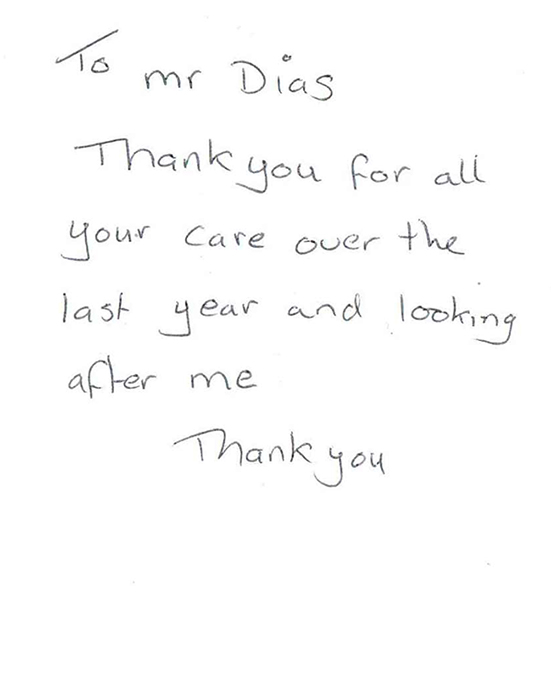 To mr Dias
Thank you for all
your care over the
last year and looking
after me
Thank you